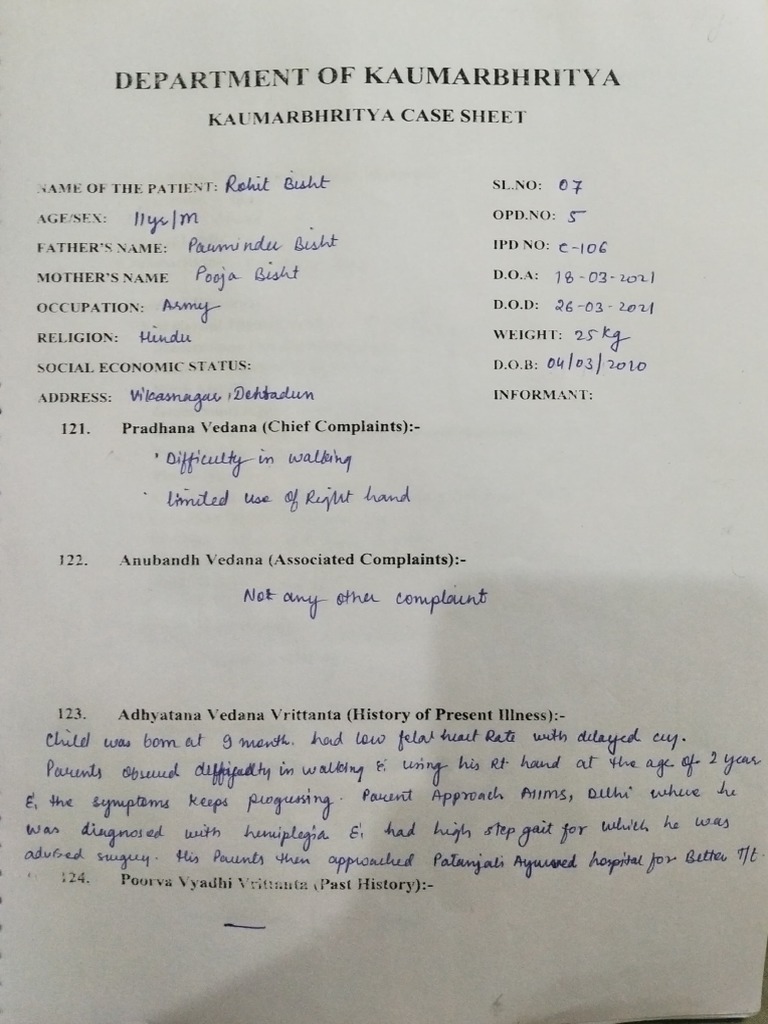 DEPARTMENT OF KAUMARBHRITYA
KAUMARBHRITYA CASE SHEET
NAME OF THE PATIENT: Rohit Bisht
SL.NO: 07
AGE/SEX: 11yr/M
OPD.NO: 5
FATHER'S NAME: Parminder Bisht
IPD NO: C-106
MOTHER'S NAME Pooja Bisht
D.O.A: 18-03-2021
OCCUPATION: Army
D.O.D: 26-03-2021
RELIGION: Hindu
WEIGHT: 25kg
SOCIAL ECONOMIC STATUS:
D.O.B: 04/03/2010
ADDRESS: Vikasnagar, Dehradun
INFORMANT:
121. Pradhana Vedana (Chief Complaints):-
· Difficulty in walking
· limited use of Right hand
122. Anubandh Vedana (Associated Complaints):-
Not any other complaint
123. Adhyatana Vedana Vrittanta (History of Present Illness):-
Child was born at 9 month. had low fetal heart Rate with delayed cry.
Parents observed difficulty in walking & using his Rt hand at the age of 2 year
& the symptoms keeps progressing. Parent Approach AIIMS, Delhi where he
was diagnosed with hemiplegia & had high step gait for which he was
advised surgery. His Parents then approached Patanjali Ayurved hospital for Better T/t.
124. Poorva Vyadhi Vrittanta (Past History):-
—